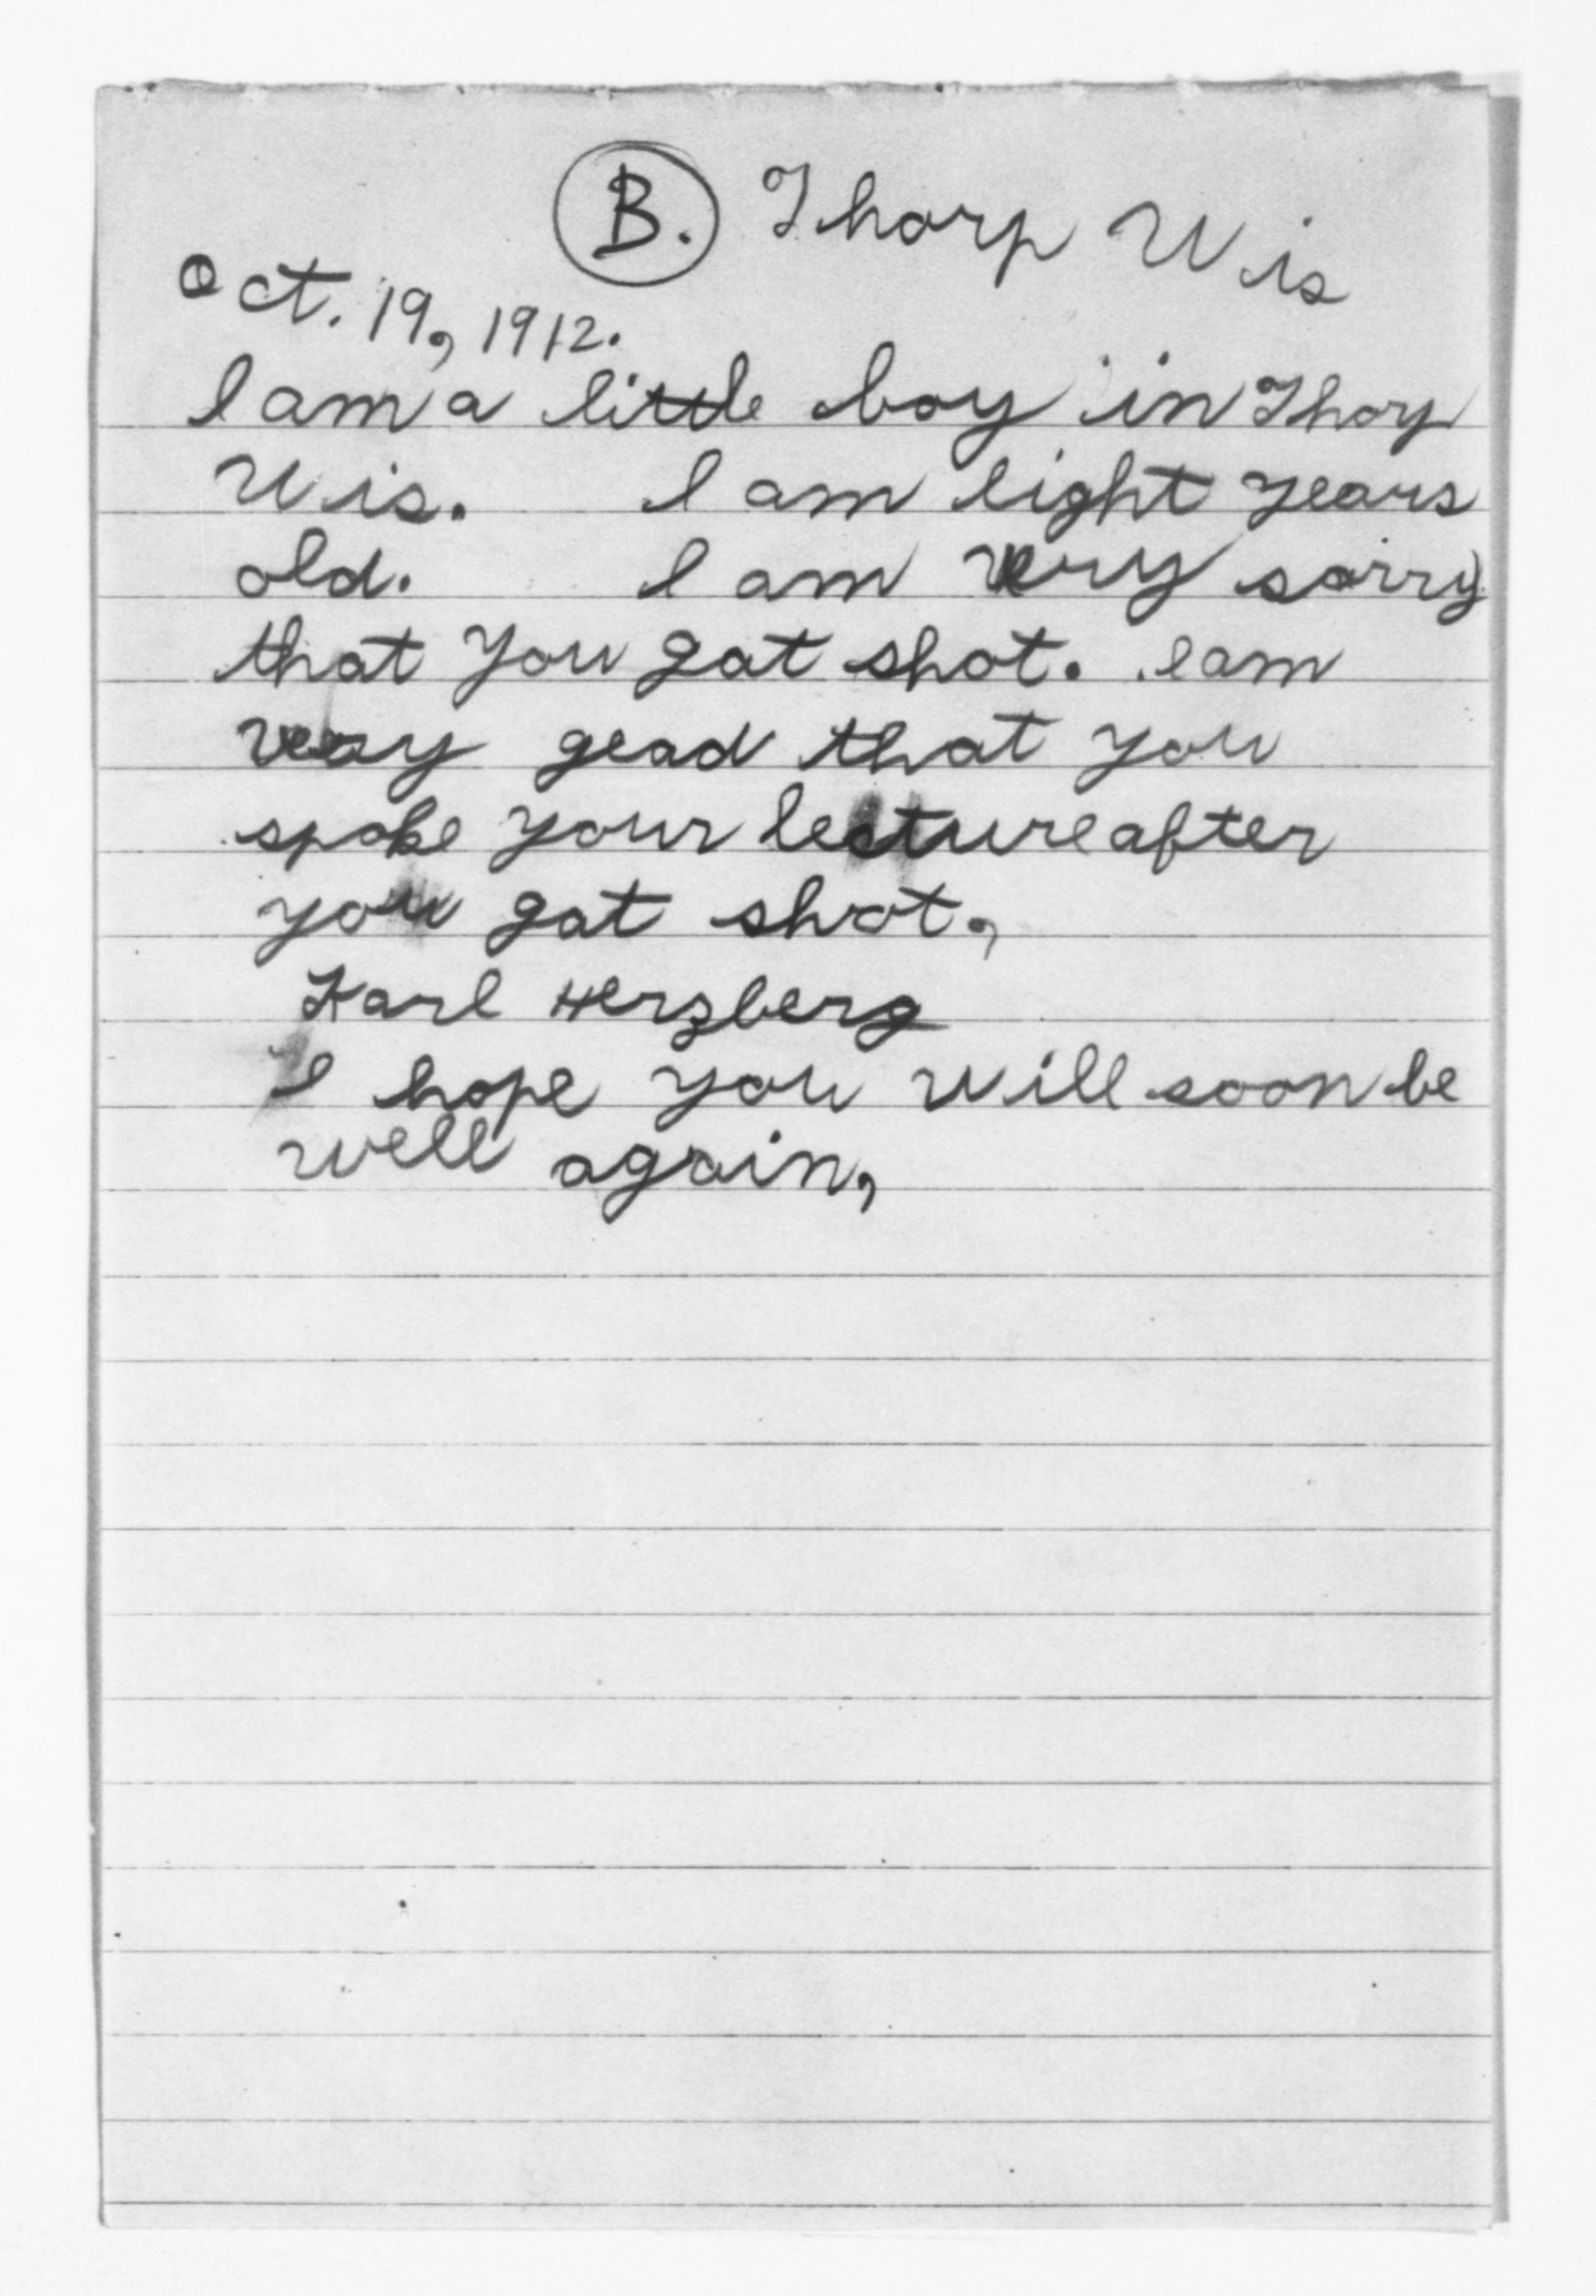 B. Thorp Wis
Oct. 19, 1912.
I am a little boy in Thorp
Wis. I am eight years
old. I am very sorry
that you got shot. I am
very glad that you
spoke your lecture after
you got shot,
Karl Herzberg
I hope you will soon be
well again,